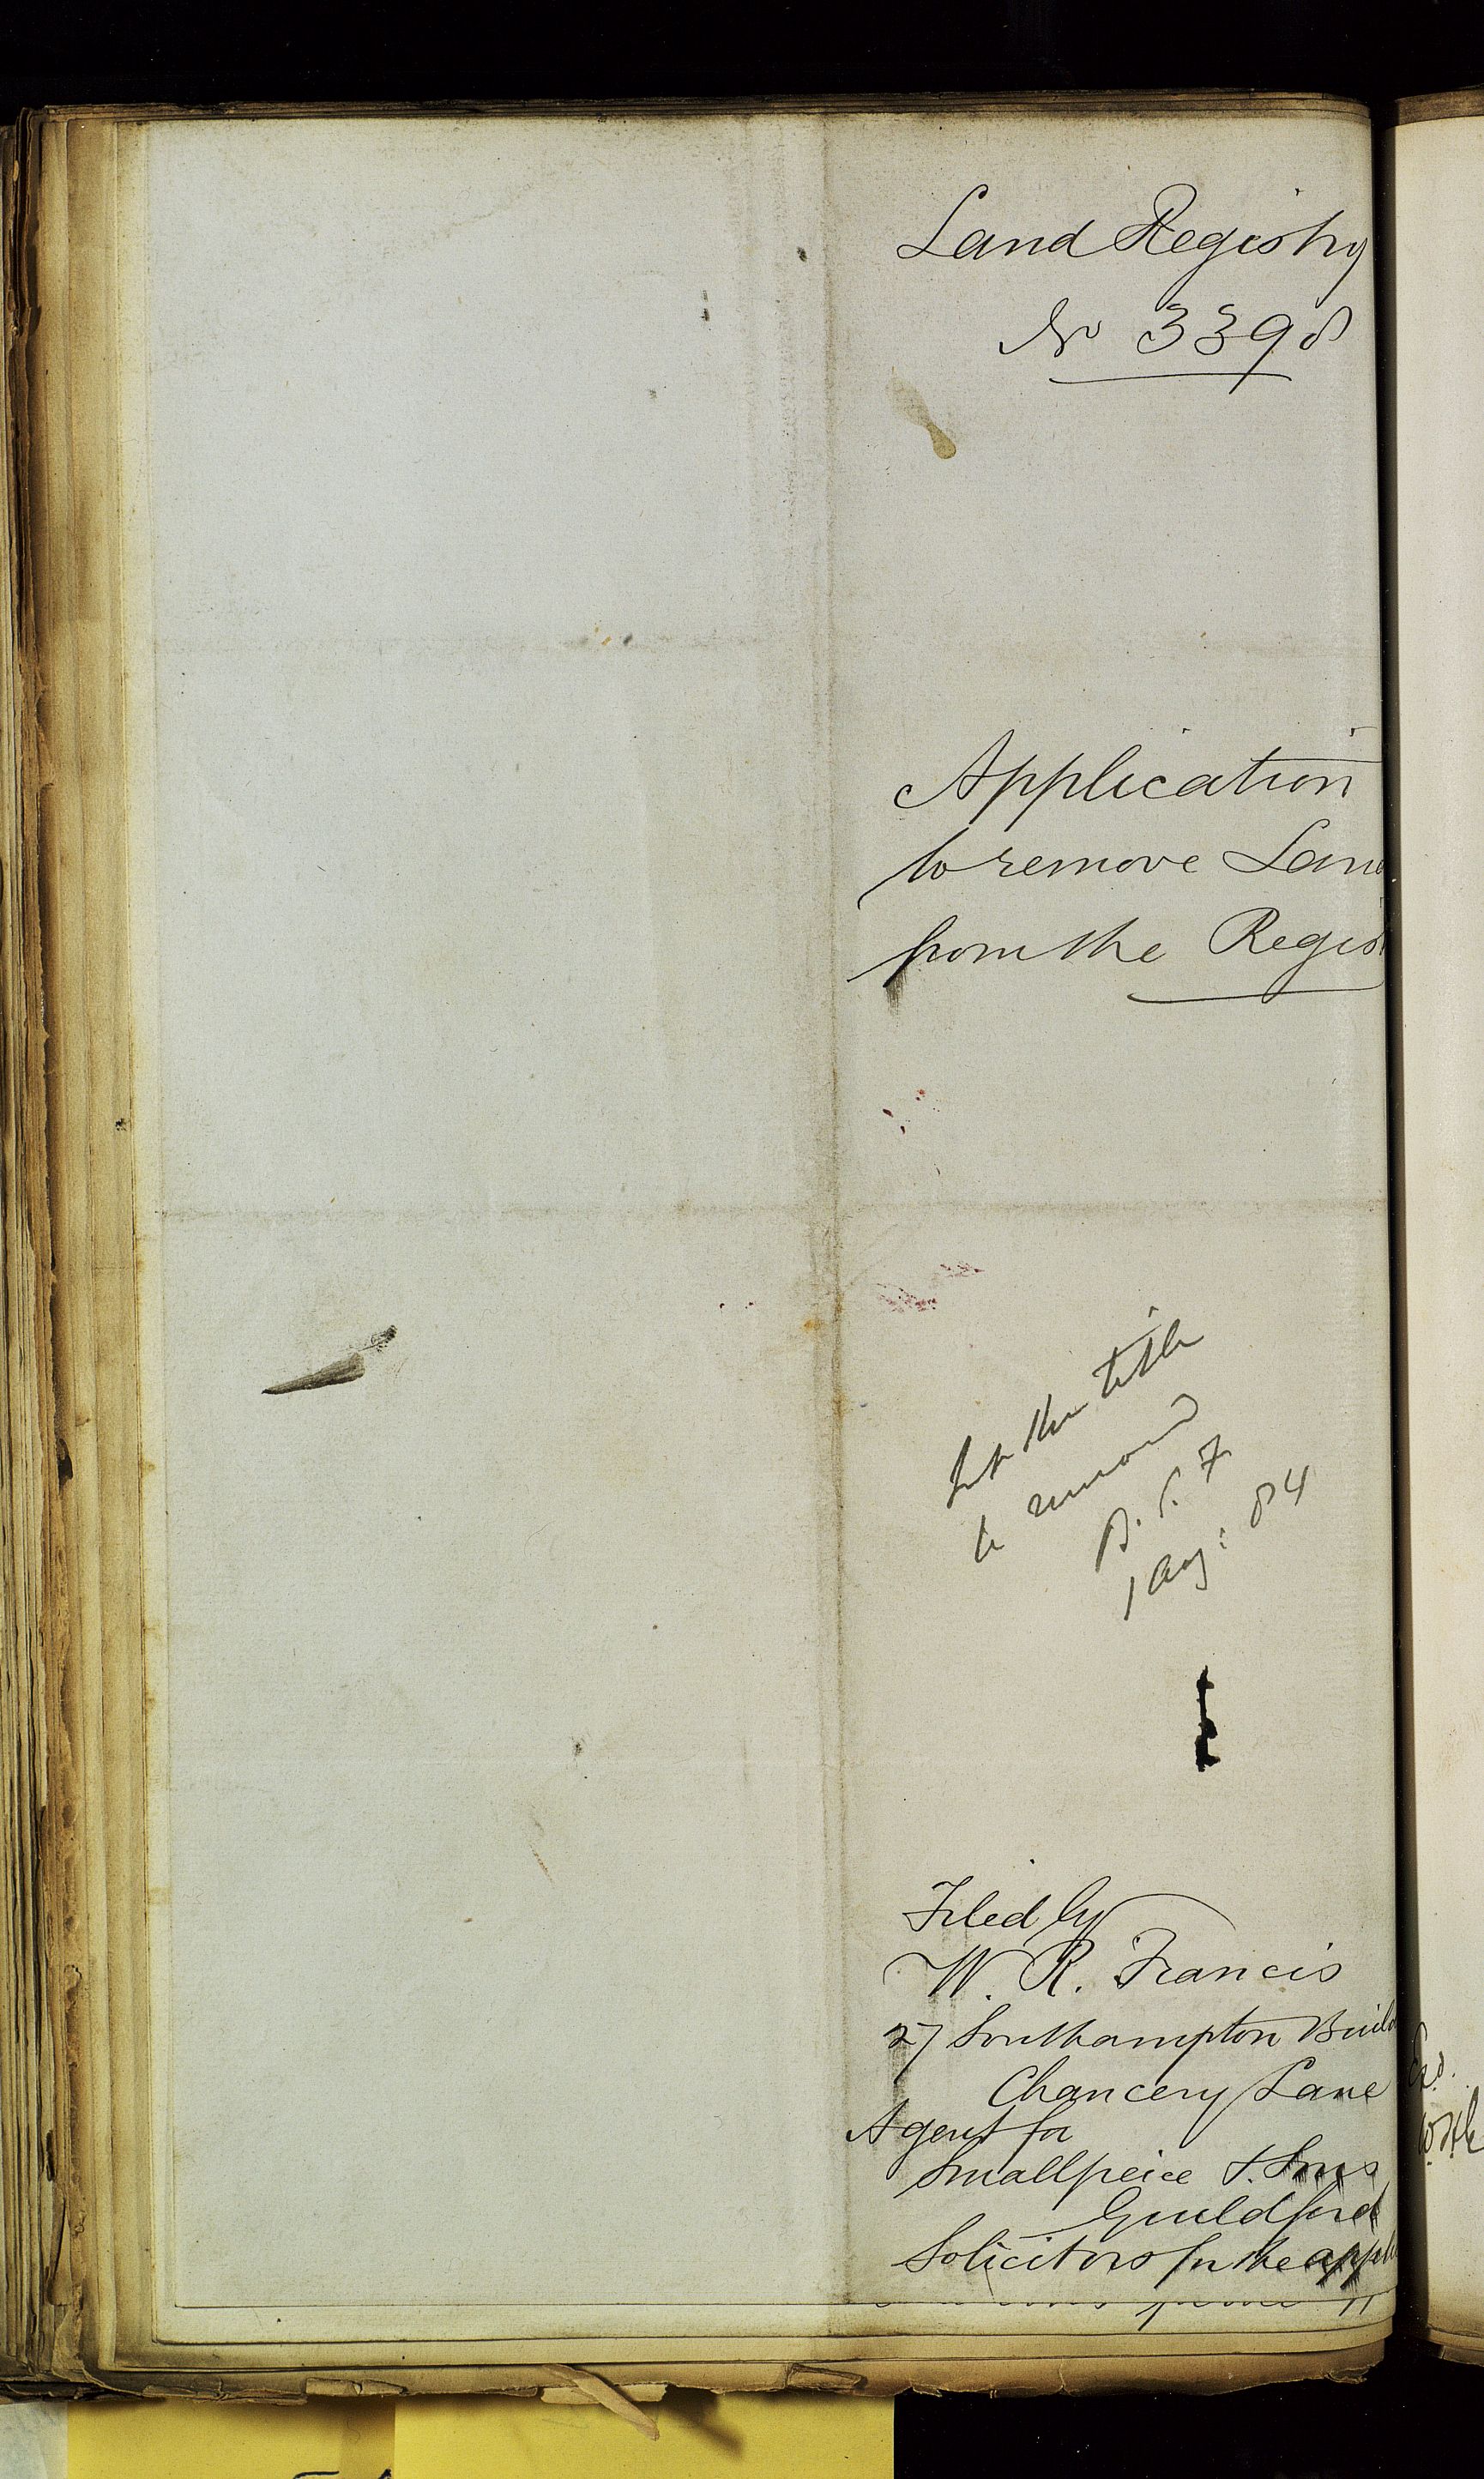 Land Registry
No 3398
Application
to remove Lan
from the Regis
Let the title
be removed
B. S. F
1 Aug: 84
Filed by
W. R. Francis
27 Southampton Buil
Chancery Lane
Agent for
Smallpeice & Sons
Guildford
Solicitors for the appl